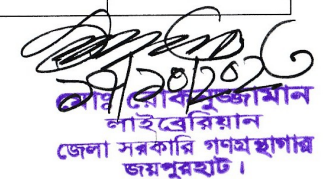 ২৭/১০/২০২৩
মোঃ রোকনুজ্জামান
লাইব্রেরিয়ান
জেলা সরকারি গণগ্রন্থাগার
জয়পুরহাট।